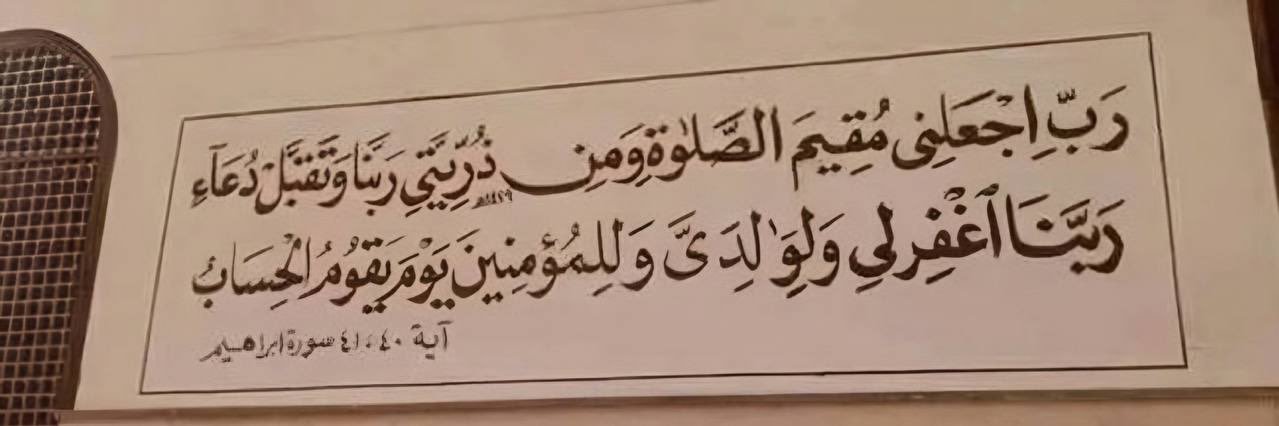 رَبِّ اِجْعَلْنِى مُقِيمَ الصَّلَوٰةِ وَمِن ذُرِّيَّتِي رَبَّنَا وَتَقَبَّلْ دُعَآءِ
رَبَّنَا ٱغْفِرْ لِي وَلِوَٰلِدَىَّ وَلِلْمُؤْمِنِينَ يَوْمَ يَقُومُ الْحِسَابُ
آية ٤٠، ٤١ سورة ابراهيم